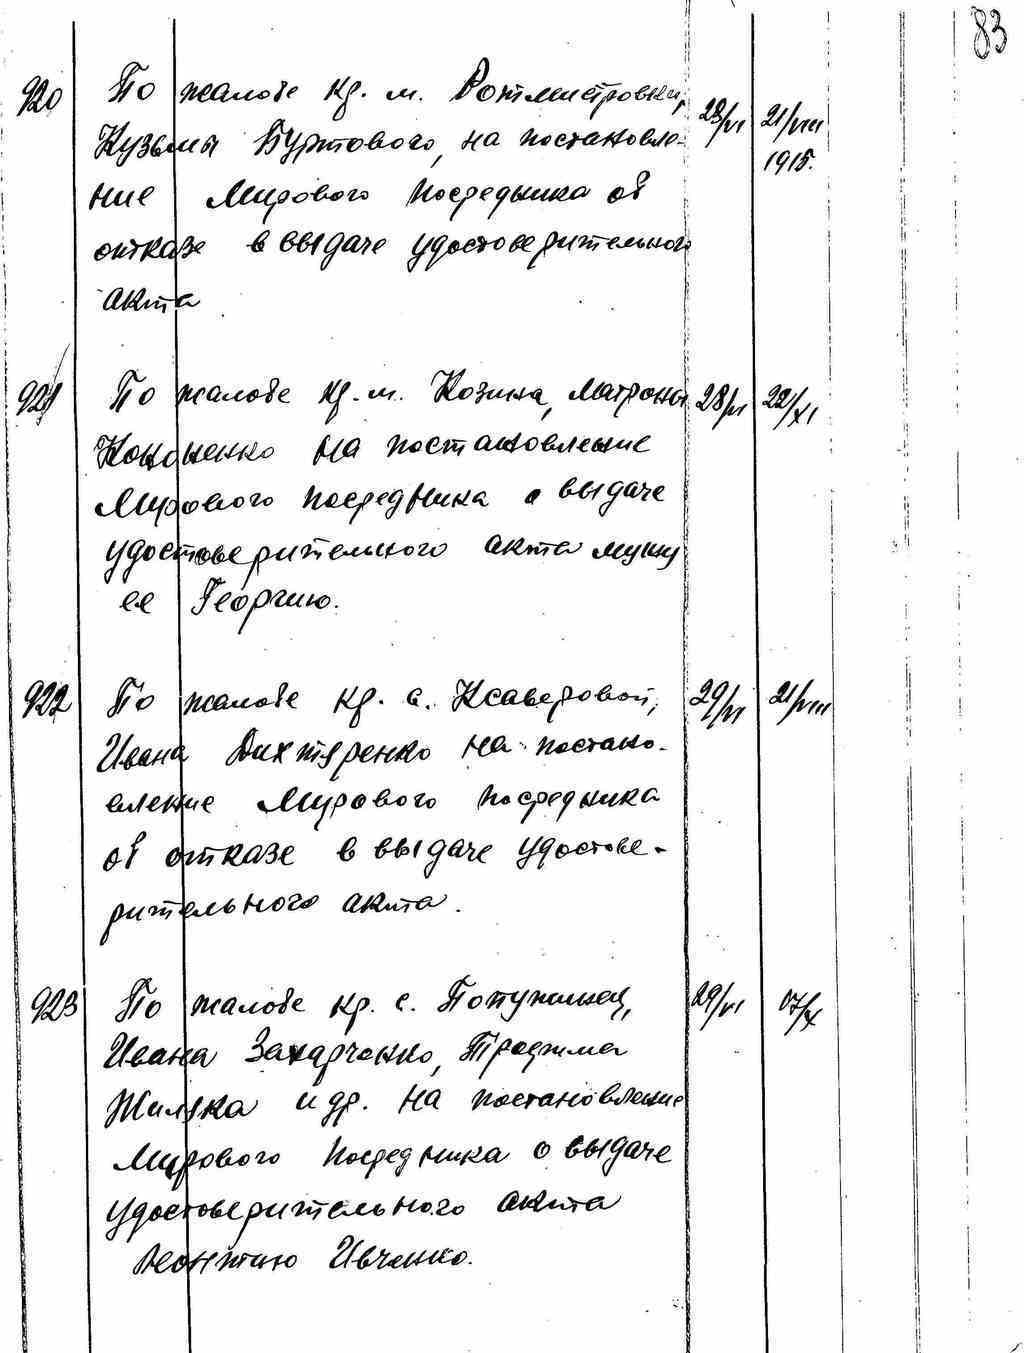 83
920 По жалобе кр. м. Ротмистровки, 28/VI 21/VIII
Кузьмы Буртового, на постановле- 1915.
ние Мирового Посредника об
отказе в выдаче удостоверительного
акта
921 По жалобе кр. м. Козина, Матроны 28/VI 22/XI
Кононенко на постановление
Мирового Посредника о выдаче
удостоверительного акта мужу
ее Георгию.
922 По жалобе кр. с. Ксаверовой, 29/VI 21/VIII
Ивана Дихтяренко на постано-
вление Мирового Посредника
об отказе в выдаче удостове-
рительного акта.
923 По жалобе кр. с. Потужинец, 29/VI 07/X
Ивана Захарченко, Трофима
Жиляка и др. на постановление
Мирового Посредника о выдаче
удостоверительного акта
Леонтию Ивченко.